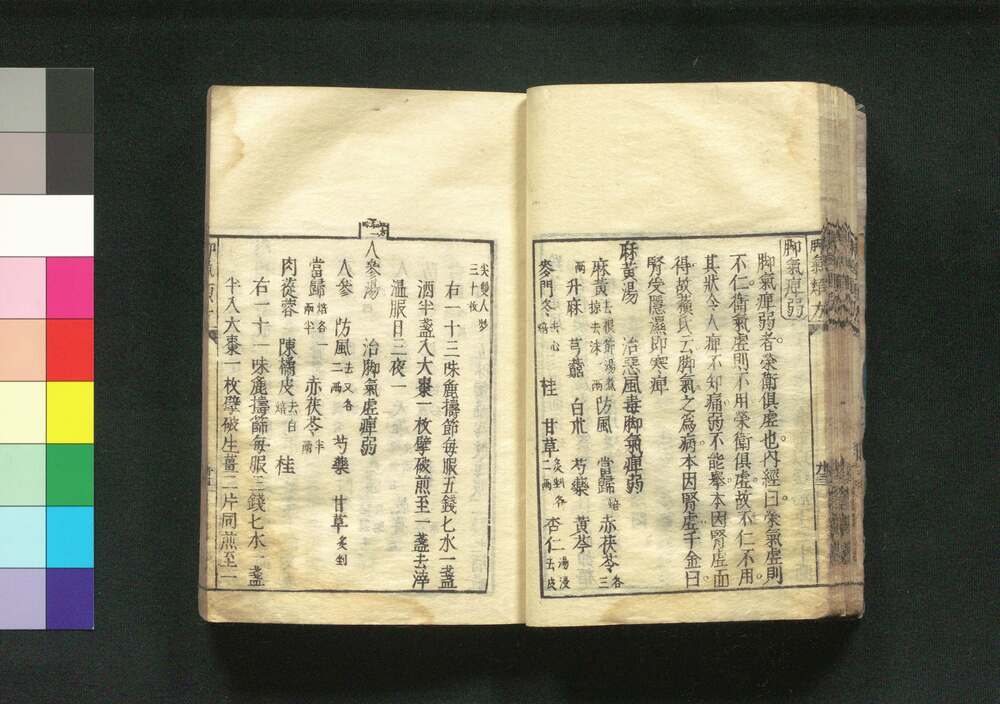 脚氣類方
脚氣痺弱
脚氣痺弱者榮衛俱虛也內經曰榮氣虛則
不仁衛氣虛則不用榮衛俱虛故不仁不用
其狀令人痺不知痛弱不能舉本因腎虛而
得故蘇氏云脚氣之為病本因腎虛千金曰
腎受陰濕即寒痺
麻黃湯 治惡風毒脚氣痺弱
麻黃去根節湯煮掠去沫 兩 防風 當歸焙 赤茯苓各三
兩 升麻 芎藭 白朮 芍藥 黃芩
麥門冬去心焙 桂 甘草炙剉各二兩 杏仁湯浸去皮
尖雙人炒三十枚
右一十三味麁擣篩每服五錢匕水一盞
酒半盞入大棗一枚擘破煎至一盞去滓
溫服日三夜一
人參湯 治脚氣虛痺弱
人參 防風去叉各二兩 芍藥 甘草炙剉
當歸焙各一兩半 赤茯苓半兩
肉蓯蓉 陳橘皮去白焙 桂
右一十一味麁擣篩每服三錢匕水一盞
半入大棗一枚擘破生薑二片同煎至一